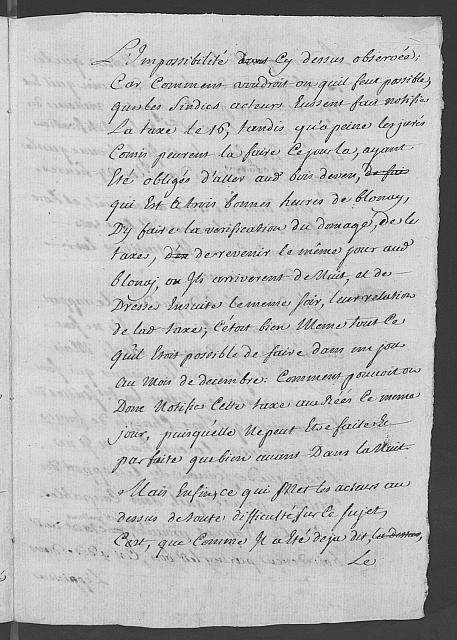 L'Impossibilité dont Cy dessus observée;
Car Comment voudroit on quil feut possible,
que les Sindics acteurs Eussent fait notifier
La taxe le 16, tandis qu'a peine les jurés
Comis peurent la faire Ce jour la, ayant
Eté obligés d'aller aud bois deven, de fais
qui Est a trois bonnes heures de blonay,
D'y faire la verification du domage, de le
taxe, d'en de revenir le même jour aud
blonaj, ou Ils arriverent de Nuit, et de
Dresser Ensuite le meme soir, leur relation
de lad taxe; C'etoit bien Meme tout Ce
qu'il Etoit possible de faire dans un jou
au Mois de decembre: Comment pouvoit on
Donc Notifier Cette taxe aux Rées le meme
jour, puisquelle Ne peut Etre faite Et
parfaite que bien avant Dans la Nuit.
Mais Enfin, Ce qui Met les acteurs au
dessus de toute difficulté sur Ce sujet,
C'est, que Comme Il a Eté deja dit, la dessus,
Le